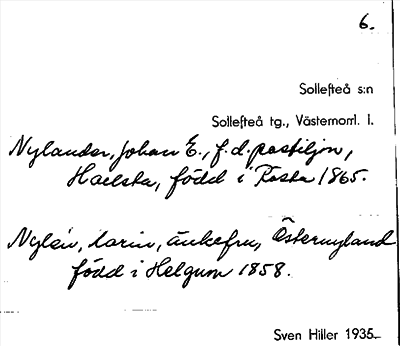 6.
Sollefteå s:n
Sollefteå tg., Västernorrl. l.
Nylander, Johan E., f.d. postiljon,
Haelsta, född i Resta 1865.
Nylén, Karin, änkefru, Östernyland
född i Helgum 1858.
Sven Hiller 1935